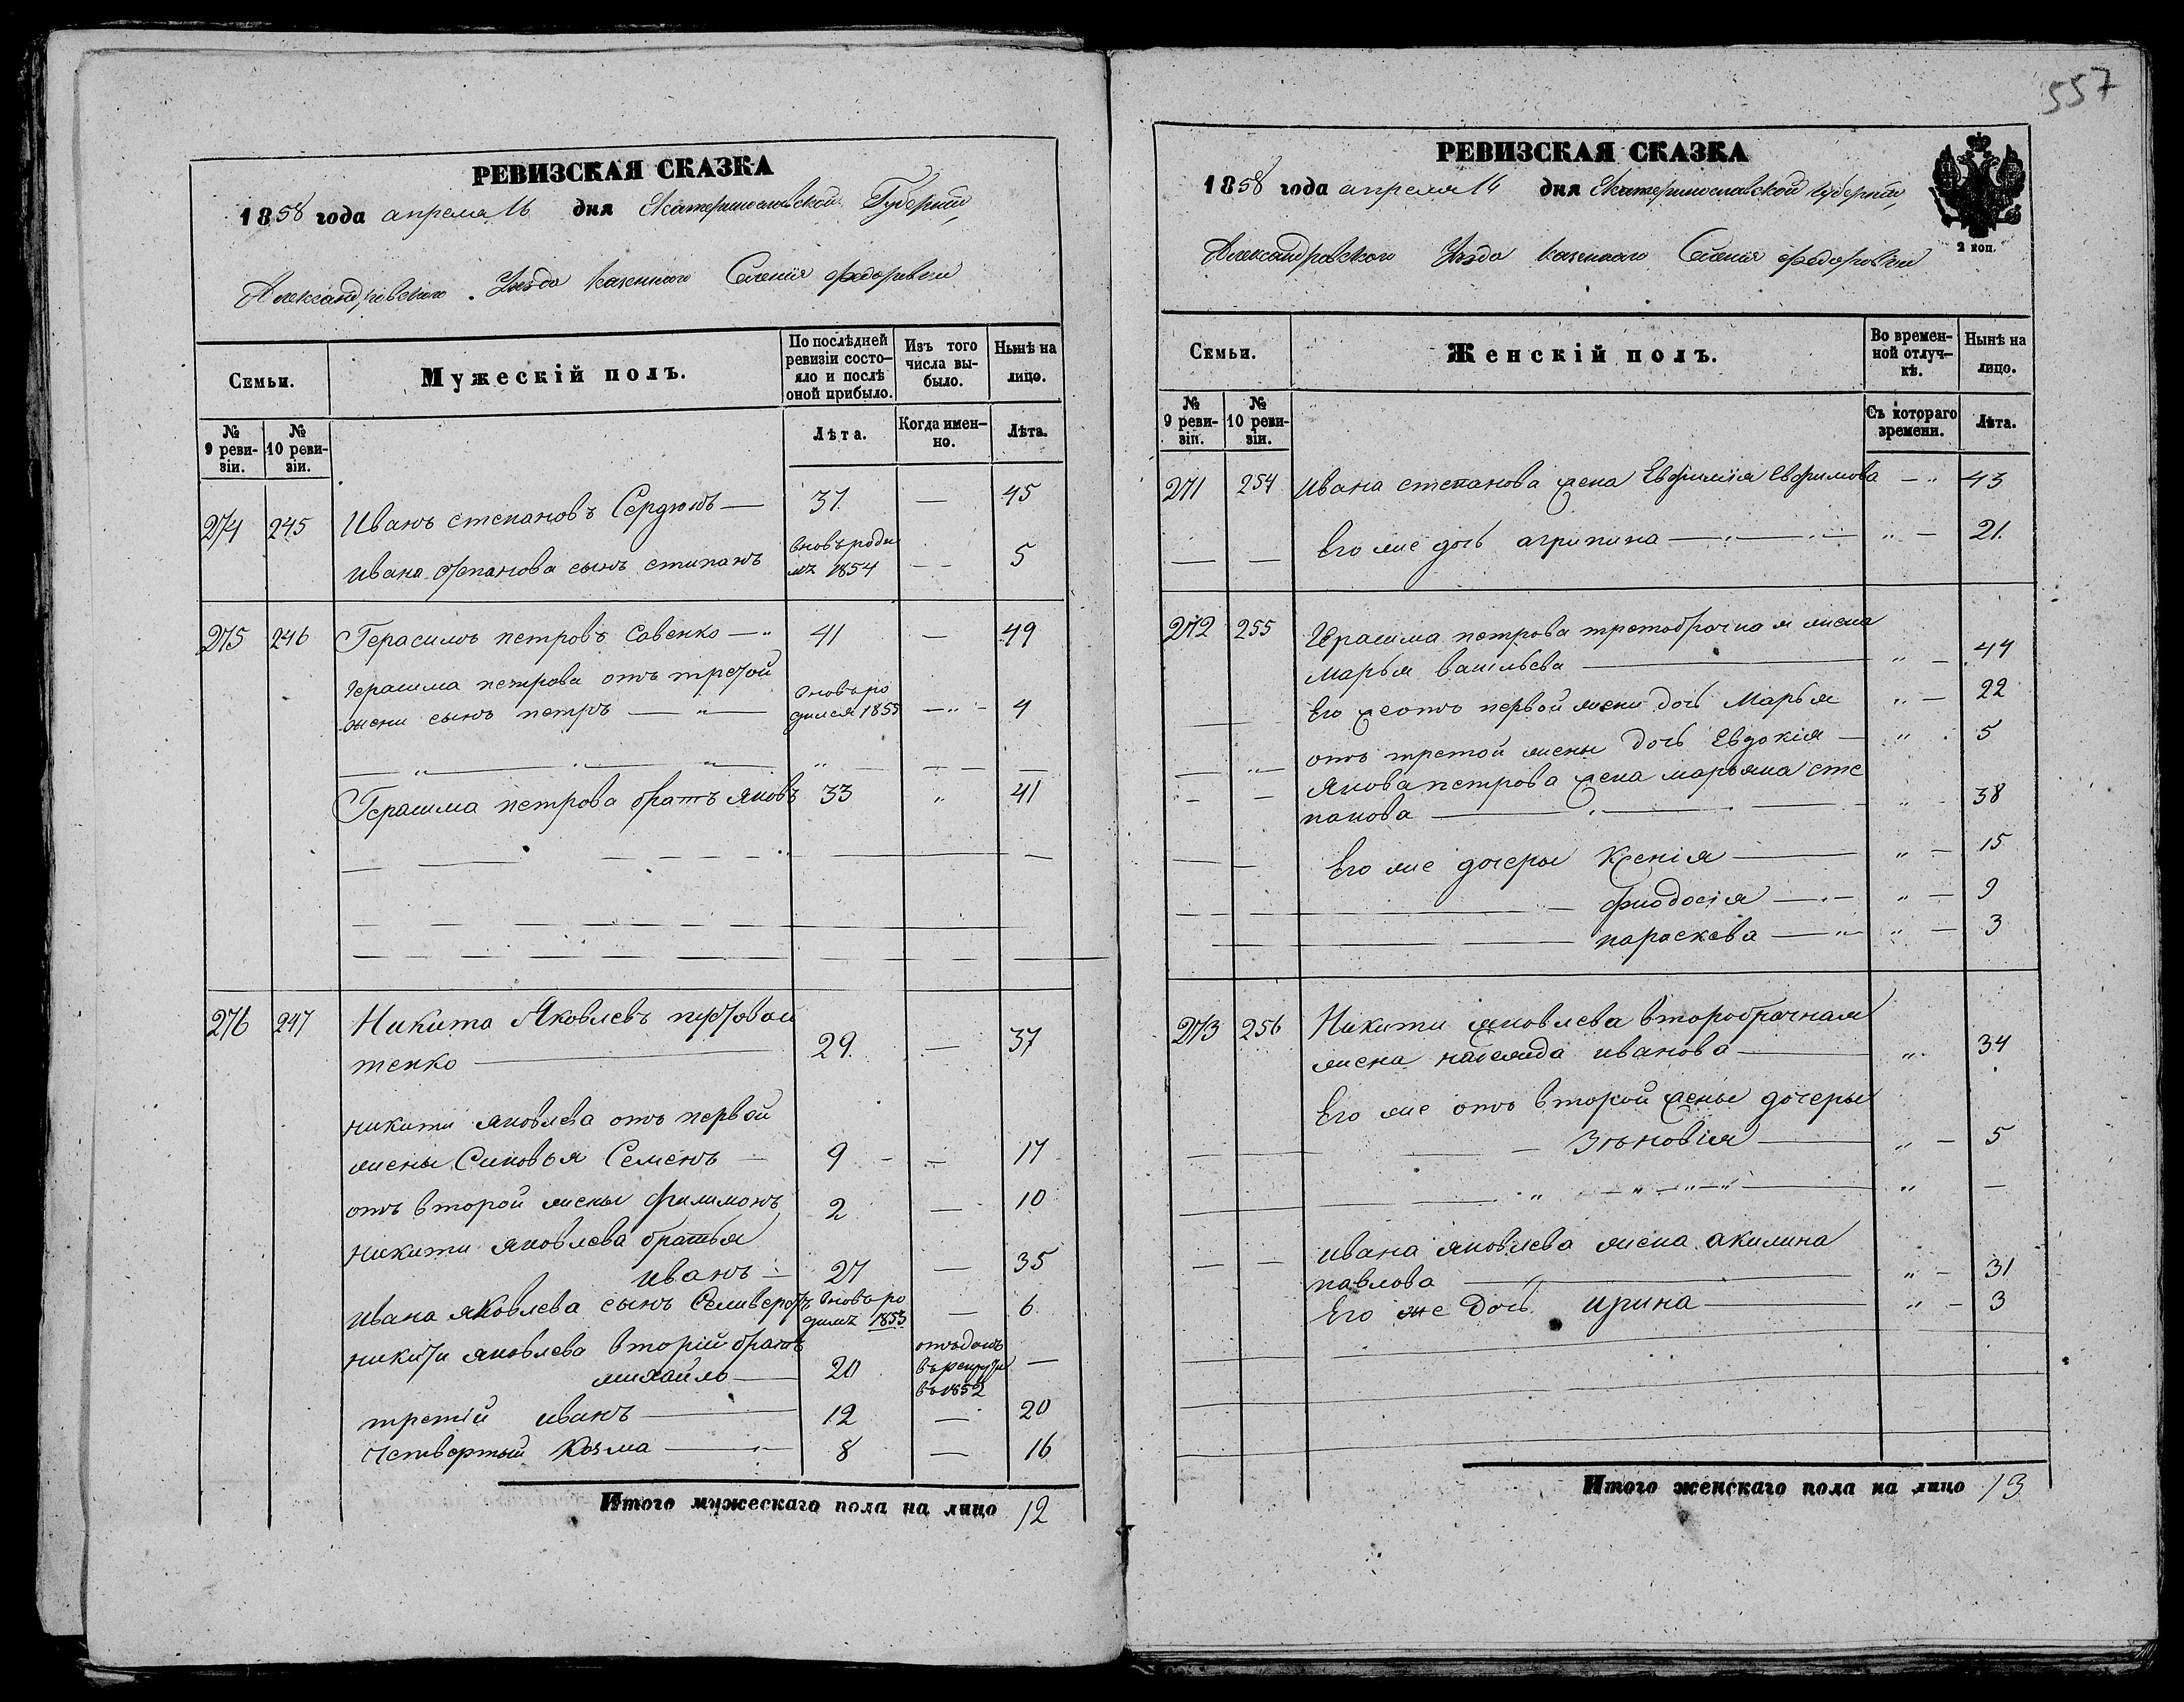 РЕВИЗСКАЯ СКАЗКА
1858 года апреля 16 дня Екатеринославской Губерніи,
Александровскаго Уезда казеннаго Селенія Федоровки
Семьи. Мужескій полъ. По послѣдней ревизіи состояло и послѣ оной прибыло. Изъ того числа выбыло. Нынѣ на лицо.
№ 9 ревизіи. № 10 ревизіи. Лѣта. Когда именно. Лѣта.
274 245 Иванъ степановъ Сердюкъ — 37 — 45
Ивана степанова сынъ стипанъ вновь родил 1854 — 5
275 246 Герасимъ петровъ Савенко — 41 — 49
Герасима петрова отъ третой
жени сынъ петръ — вновь родился 1855 — 4
Герасима петрова братъ яковъ 33 „ 41
276 247 Никита Яковлевъ
тенко — 29. — 37
никити яковлева отъ первой
жены Синовья Семенъ — 9 — 17
отъ второй жены филимонъ 2 — 10
никити яковлева братья
иванъ — 27 — 35
ивана яковлева сынъ Селиверстъ вновь родилъ 1853 — 6
никити яковлева вторій братъ
михайло — 20 отъданъ въ рекруты въ 1852 —
третій иванъ — 12 — 20
Четвертый Козма — 8 — 16
Итого мужескаго пола на лицо 12
557
РЕВИЗСКАЯ СКАЗКА
1858 года апреля 16 дня Екатеринославской губерніи,
2 коп.
Александровскаго Уезда казеннаго Селенія федоровки
Семьи. Женскій полъ. Во временной отлучкѣ. Нынѣ на лицо.
№ 9 ревизіи. № 10 ревизіи. Съ котораго времени. Лѣта.
271 254 Ивана степанова жена Евфимія Евфимова — 43
Его же дочь агрипина — 21.
272 255 Герасима петрова третобрачная жена
марья васильева — 44
Его же отъ первой жени дочь Марья „ — 22
отъ третой жены дочь Евдокія — „ 5
Якова петрова жена марьяна сте
панова — „ 38
Его же дочеры Ксенія — „ — 15
фиодосія — „ — 9
параскева — „ — 3
273 256 Никити яковлева второбрачная
жена иванова — „ 34
Его же отъ второй жены дочеры
Зѣновія — „ — 5
ивана яковлева жена акилина
павлова — „ — 31
Его же дочь ирина — „ — 3
Итого женскаго пола на лицо 13